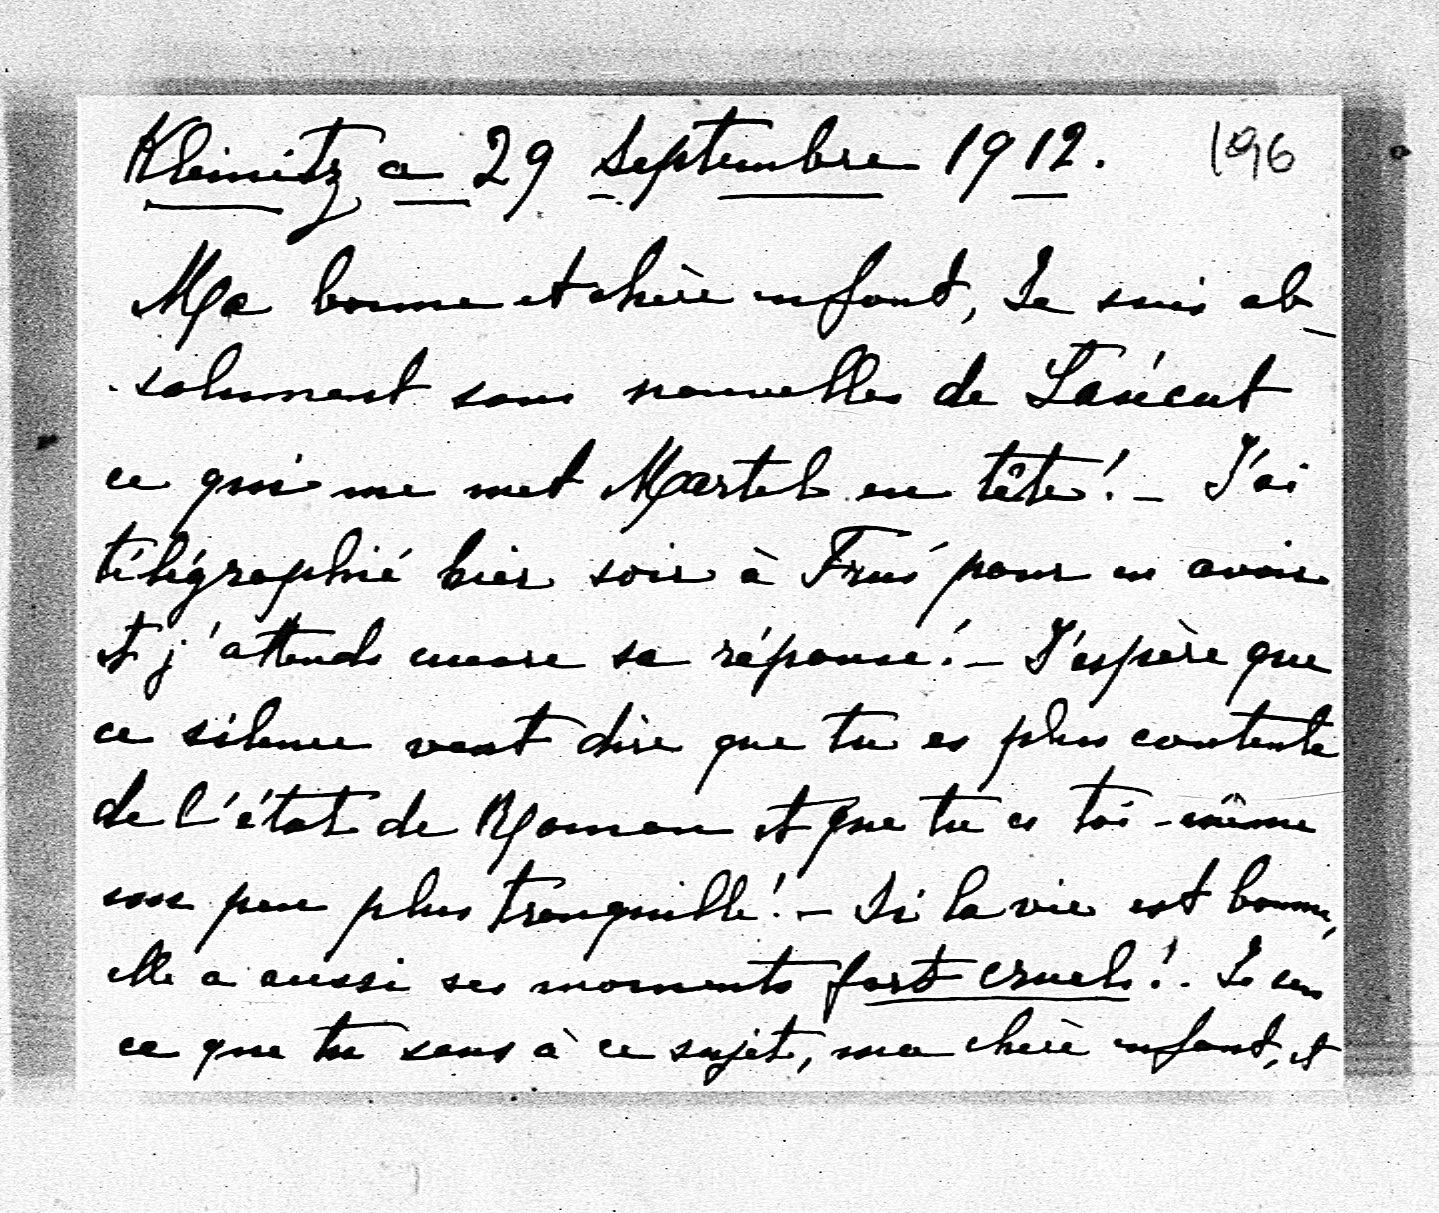 Kleinitz ce 29 Septembre 1912. 196
Ma bonne et chère enfant, Je suis ab-
solument sans nouvelles de Lancut
ce qui me met Martel en tête! - J'ai
télégraphié hier soir à pour en avoir
et j'attends encore sa réponse! - J'espère que
ce silence veut dire que tu es plus contente
de l'état de Roman et que tu es toi-même
un peu plus tranquille! - Si la vie est bonne,
elle a aussi ses moments fort cruels!. Je sens
ce que tu sens à ce sujet, ma chère enfant, et